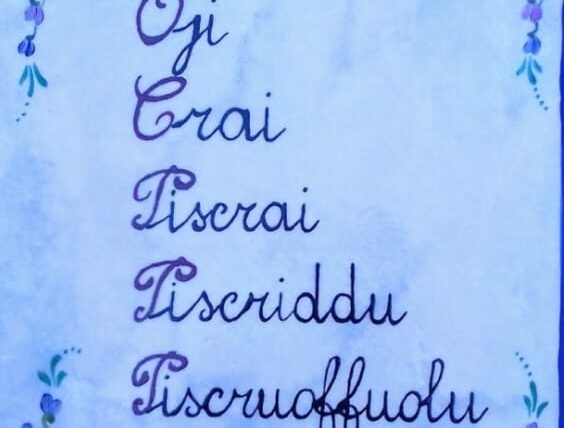 Oji
Crai
Piscrai
Piscriddu
Piscruoffuolu